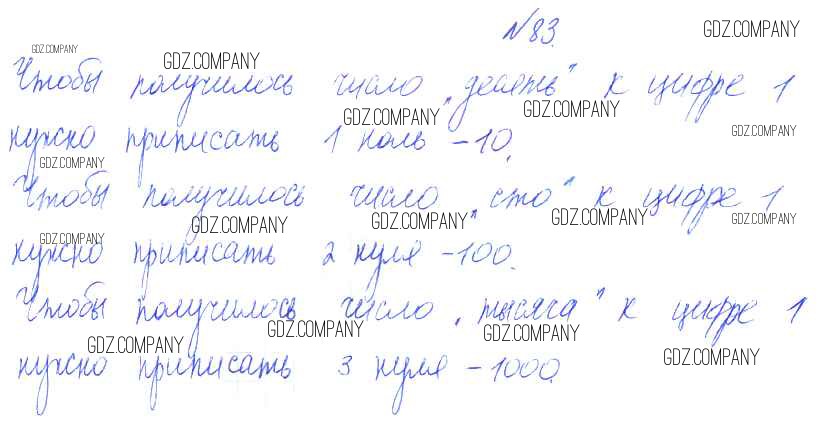 №83.
GDZ.COMPANY
GDZ.COMPANY
GDZ.COMPANY
Чтобы получилось число „десять" к цифре 1
GDZ.COMPANY
GDZ.COMPANY
GDZ.COMPANY
нужно приписать 1 ноль – 10.
GDZ.COMPANY
Чтобы получилось число „сто" к цифре 1
GDZ.COMPANY
GDZ.COMPANY
GDZ.COMPANY
GDZ.COMPANY
GDZ.COMPANY
нужно приписать 2 нуля – 100.
Чтобы получилось число „тысяча" к цифре 1
GDZ.COMPANY
GDZ.COMPANY
GDZ.COMPANY
GDZ.COMPANY
нужно приписать 3 нуля – 1000.